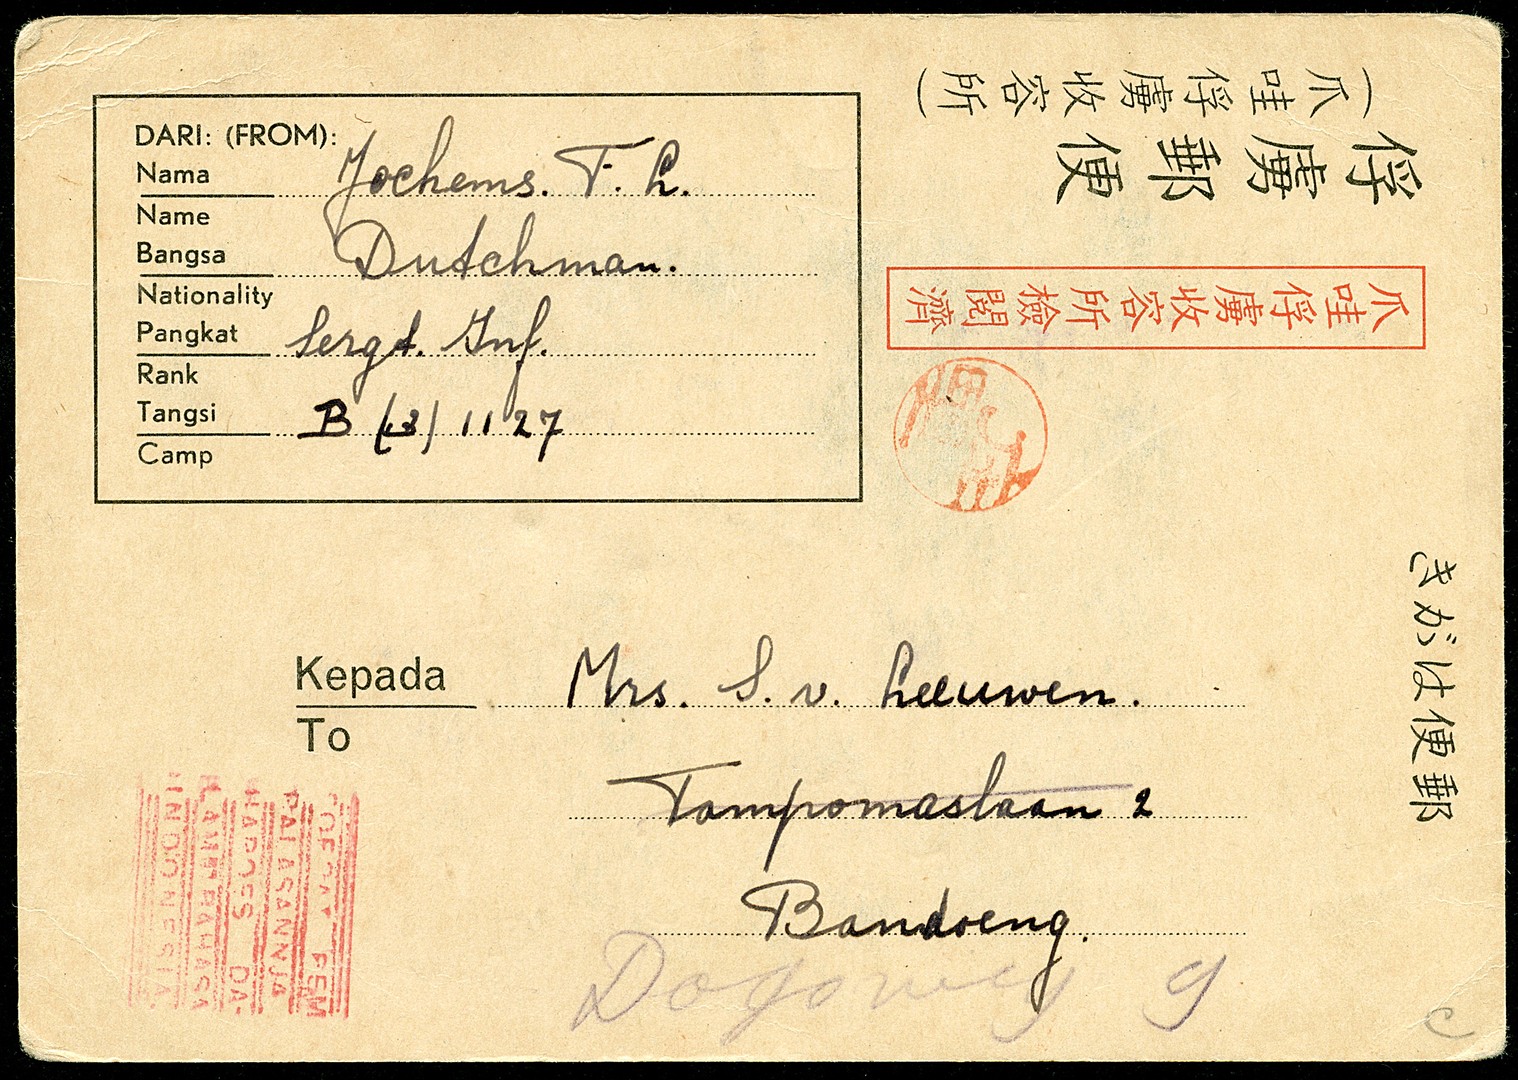 (爪哇俘虜收容所)
俘虜郵便
爪哇俘虜收容所檢閱濟
DARI: (FROM):
Nama Jochems. F. L.
Name
Bangsa Dutchman.
Nationality
Pangkat Sergt. Inf.
Rank
Tangsi B (3) 1127
Camp
郵便はがき
Kepada Mrs. S. v. Leeuwen.
To
Tampomaslaan 2
Bandoeng.
Dagoweg 9
PEM
BALASANNJA
HAROES DA
BAHASA
INDONESIA
c